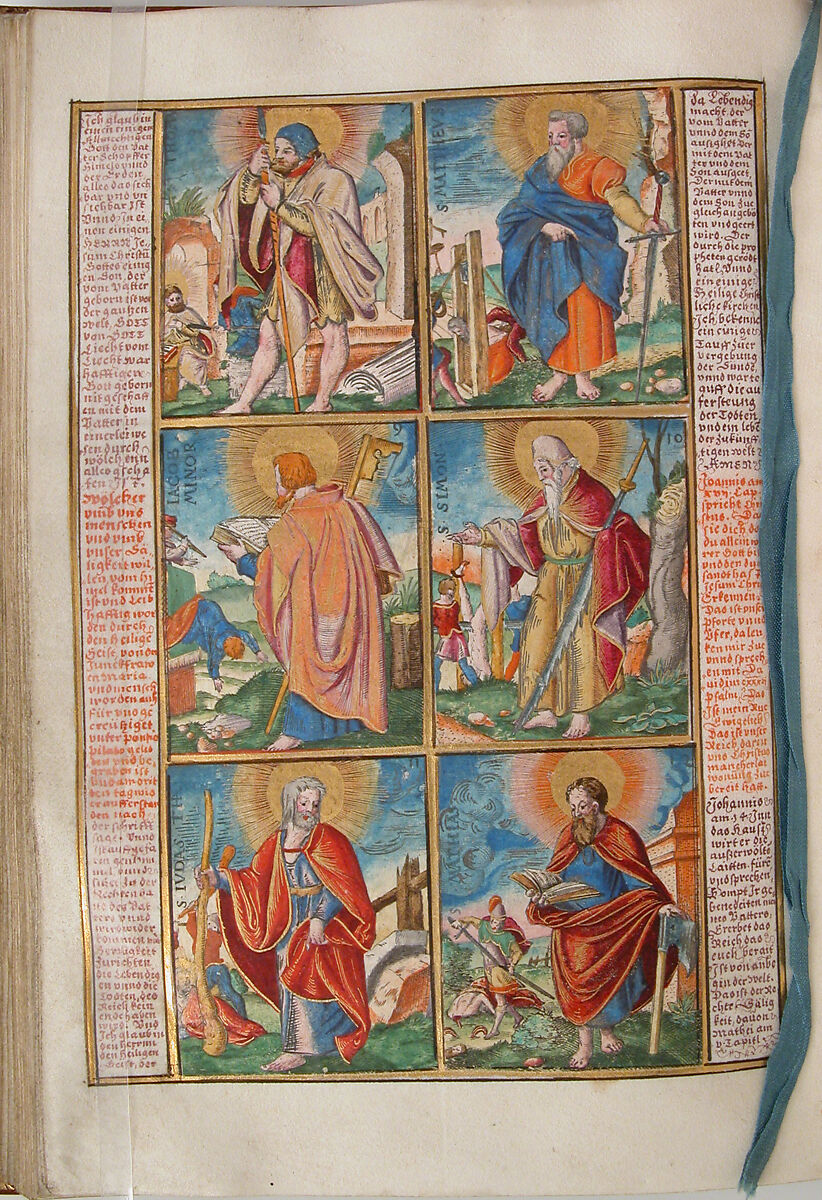 Ich glaub in
einen einigen
Allmechtigen
Gott den Vat
ter Schöpffer
Himels vnnd
der Erden
alles das sich
bar vnd vn
sichbar ist
Vnnd In ei
nen einigen
HERRN Je
sum Christū
Gottes einig
en Son, der
vom Vatter
geborn ist vor
der gantzen
welt, GOTT
von GOTT
Liecht vom
Liecht war
hafftigen
Gott geborn
nit geschaff
en mit dem
Vatter in
einerlei we
sen durch
wölchen
alles gscha
ffen ist.
Wölcher
vmb vns
menschen
vnd vmb
vnser Sä
ligkeit wil
len vom hi
mel kommt
ist vnd Leib
hafftig wor
den durch
den heilige
Geist von der
Junckfrawen
Maria
vnd mensch
worden auch
für vns ge
creutziget
vnter Pontio
Pilato gelid
ten vnd be
graben ist
vnd am drit
ten tag wid
er aufferstan
den nach
der schrifft
sage. Vnnd
ist auffgefa
ren gen himel
Rechten
des Vat
ters vnnd
wird wider
kommen mit
Herligkeit
Zurichten
die Lebendig
en vnnd die
Todten, des
Reich kein
ende haben
wird. Vnd
Ich glaub in
den herrn
den heiligen
Geist, der
S MATTHEVS
IACOB
MINOR
9
S. SIMON
10
S IVDAS
11
da Lebendig
macht, der
vom Vatter
vnnd dem So
ausgehet. Der
mit dem Vat
ter vnd dem
Son ausget,
Der mit dem
Vatter vnnd
dem Son Zue
gleich angebo
ten vnd geert
wird. Der
durch die pro
pheten geredt
hat. Vnnd
ein einige
Heilige Christ
liche kirchen
Ich bekenne
ein einiges
Tauff zuer
vergebung
der Sünds
vnnd warte
auff die au
fersteung
der Todten
vndem lebē
der Zukünff
tigen welt
AMEN
Joannis am
xvij. Cap
spricht Chri
stus. Das
sie dich das
du allein
rer Gott bi
vnd den du
sandt hast
Jesum Chri
Erkennen
Das ist vnser
Pforte vnnd
Vfer, da len
ken wir Zue
vnnd sprech
en mit Da
uid im cxxxij
psalm, Das
Ist mein Rue
Ewigelich
Das ist vnser
Reich darin
vns Christus
mancherlai
wonung Zue
bereit hatt.
Johannis
am 14 Inn
das Hauss
wirt er die
außerwölte
Laitten fürn
vnd sprechen,
Kompt Ir ge
benedeiten
nes Vatters,
Ererbet das
Reich das
euch berait
Ist von anbe
gin der Welt,
Das ist der Re
cher Sälig
keit, dauon
Mathei am
v Capitl